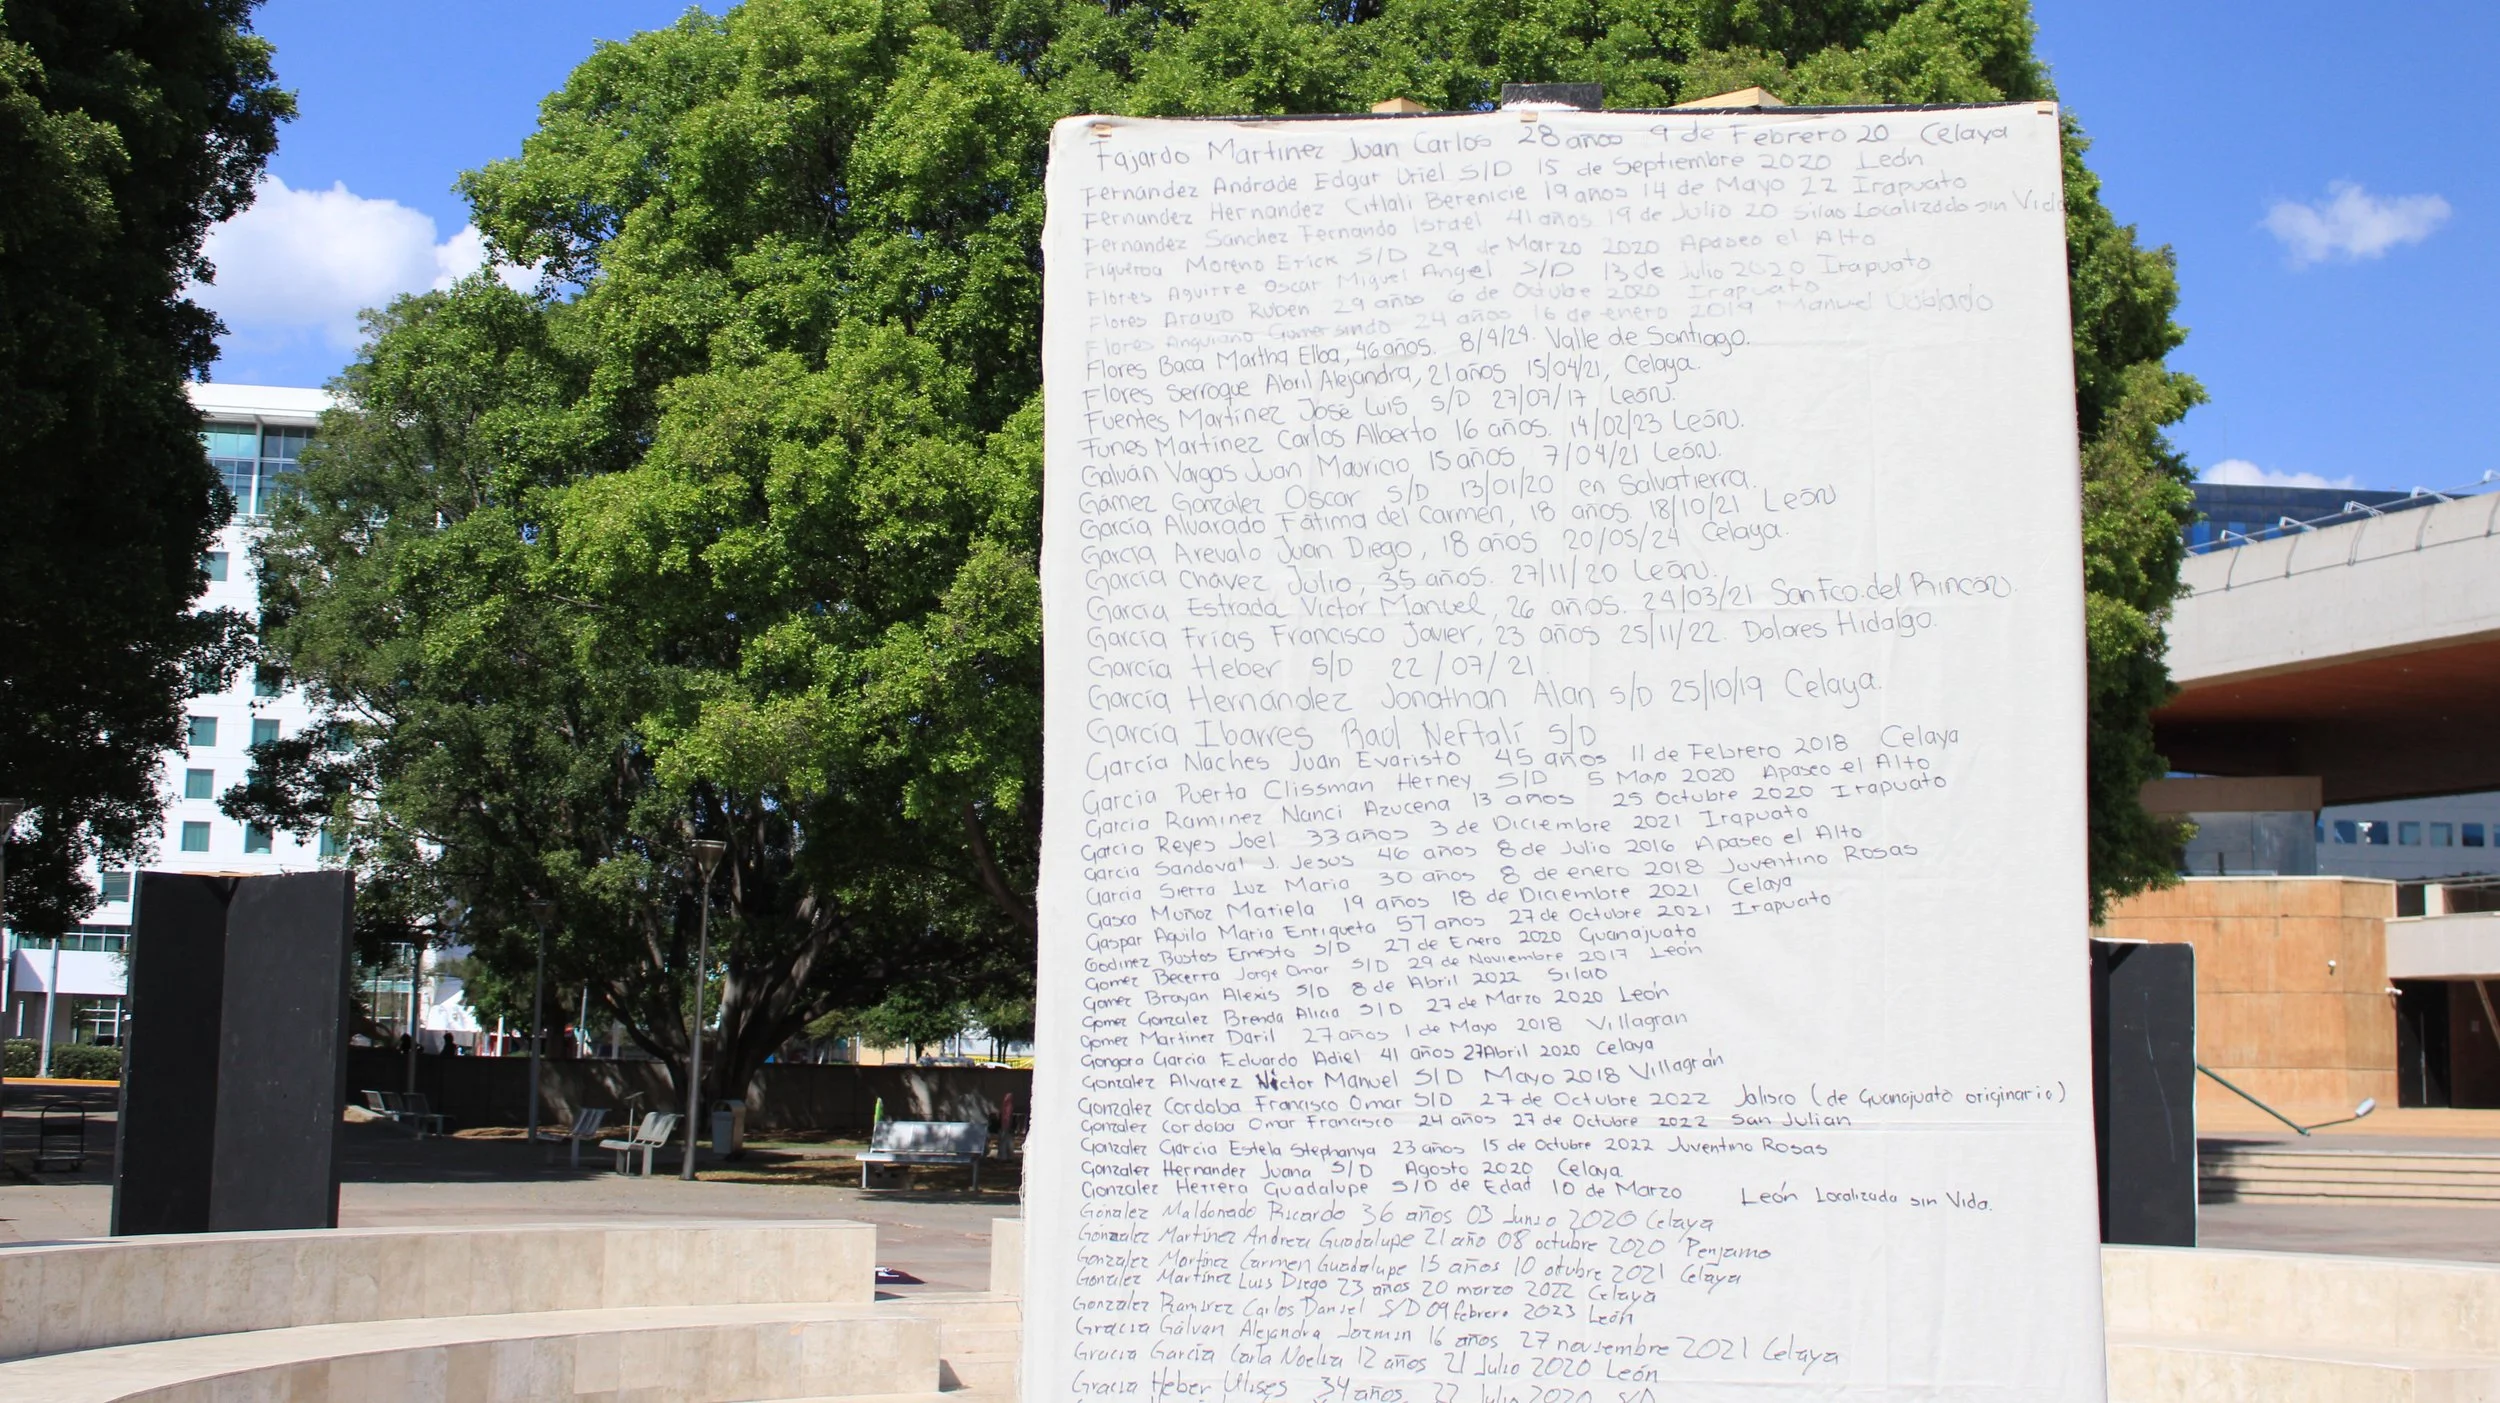 Fajardo Martinez Juan Carlos 28 años 9 de Febrero 20 Celaya
Fernandez Andrade Edgar Uriel S/D 15 de Septiembre 2020 León
Fernandez Hernandez Citlali Berenicie 19 años 14 de Mayo 22 Irapuato
Fernandez Sanchez Fernando Israel 41 años 19 de Julio 20 Silao Localizado sin Vida
Figueroa Moreno Erick S/D 29 de Marzo 2020 Apaseo el Alto
Flores Aguirre Oscar Miguel Angel S/D 13 de Julio 2020 Irapuato
Flores Araujo Ruben 29 años 6 de Octubre 2020 Irapuato
Flores Anguiano Gumersindo 24 años 16 de enero 2019 Manuel Doblado
Flores Baca Martha Elba, 46 años. 8/4/24. Valle de Santiago.
Flores Serroque Abril Alejandra, 21 años 15/04/21, Celaya.
Fuentes Martínez José Luis S/D 27/07/17 León.
Funes Martínez Carlos Alberto 16 años. 14/02/23 León.
Galván Vargas Juan Mauricio, 15 años 7/04/21 León.
Gámez González Oscar S/D 13/01/20 en Salvatierra.
García Alvarado Fátima del Carmen, 18 años. 18/10/21 León
García Arevalo Juan Diego, 18 años 20/05/24 Celaya.
García Chávez Julio, 35 años. 27/11/20 León.
García Estrada Víctor Manuel, 26 años. 24/03/21 San Fco. del Rincón.
García Frías Francisco Javier, 23 años 25/11/22. Dolores Hidalgo.
García Heber S/D 22/07/21.
García Hernández Jonathan Alan S/D 25/10/19 Celaya.
García Ibarres Raúl Neftalí S/D
García Naches Juan Evaristo 45 años 11 de Febrero 2018 Celaya
Garcia Puerta Clissman Herney S/D 5 Mayo 2020 Apaseo el Alto
Garcia Raminez Nanci Azucena 13 años 25 Octubre 2020 Irapuato
Garcia Reyes Joel 33 años 3 de Diciembre 2021 Irapuato
Garcia Sandoval J. Jesus 46 años 8 de Julio 2016 Apaseo el Alto
Garcia Sierra Luz Maria 30 años 8 de enero 2018 Juventino Rosas
Gasca Muñoz Mariela 19 años 18 de Diciembre 2021 Celaya
Gaspar Aguila Maria Enriqueta 57 años 27 de Octubre 2021 Irapuato
Godinez Bustos Ernesto S/D 27 de Enero 2020 Guanajuato
Gomez Becerra Jorge Omar S/D 29 de Noviembre 2017 León
Gomez Brayan Alexis S/D 8 de Abril 2022 Silao
Gomez Gonzalez Brenda Alicia S/D 27 de Marzo 2020 León
Gomez Martinez Daril 27 años 1 de Mayo 2018 Villagran
Gongora Garcia Eduardo Adiel 41 años 27 Abril 2020 Celaya
Gonzalez Alvarez Victor Manuel S/D Mayo 2018 Villagrán
Gonzalez Cordoba Francisco Omar S/D 27 de Octubre 2022 Jalisco (de Guanajuato originario)
Gonzalez Cordoba Omar Francisco 24 años 27 de Octubre 2022 San Julian
Gonzalez Garcia Estela Stephanya 23 años 15 de Octubre 2022 Juventino Rosas
Gonzalez Hernandez Juana S/D Agosto 2020 Celaya
Gonzalez Herrera Guadalupe S/D de Edad 10 de Marzo León Localizada sin Vida.
Gónzalez Maldonado Ricardo 36 años 03 Junio 2020 Celaya
Gónzalez Martínez Andrea Guadalupe 21 año 08 octubre 2020 Penjamo
Gonzalez Martínez Carmen Guadalupe 15 años 10 otubre 2021 Celaya
Gonzalez Martínez Luis Diego 23 años 20 marzo 2022 Celaya
Gonzalez Ramirez Carlos Daniel S/D 09 febrero 2023 León
Gracia Gálvan Alejandra Jazmin 16 años 27 noviembre 2021 Celaya
Gracia García Carla Noelia 12 años 21 Julio 2020 León
Gracia Heber Ulises 34 años 22 Julio 2020 S/D